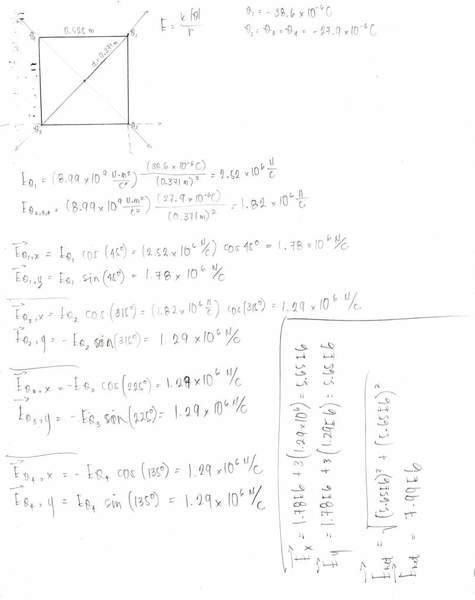 0.525 m
r = 0.371 m
E = k |Q| / r
Q₁ = -38.6 × 10⁻⁶ C
Q₂ = Q₃ = Q₄ = -27.9 × 10⁻⁶ C
Q₁
Q₄
E_Q₁ = (8.99 × 10⁹ N·m²/C²) (38.6 × 10⁻⁶ C) / (0.371 m)² = 2.52 × 10⁶ N/C
E_Q₂,₃,₄ = (8.99 × 10⁹ N·m²/C²) (27.9 × 10⁻⁶ C) / (0.371 m)² = 1.82 × 10⁶ N/C
E_Q₁,x = E_Q₁ cos (45°) = (2.52 × 10⁶ N/C) cos 45° = 1.78 × 10⁶ N/C
E_Q₁,y = E_Q₁ sin (45°) = 1.78 × 10⁶ N/C
E_Q₂,x = E_Q₂ cos (315°) = (1.82 × 10⁶ N/C) cos (315°) = 1.29 × 10⁶ N/C
E_Q₂,y = -E_Q₂ sin (315°) = 1.29 × 10⁶ N/C
E_Q₃,x = -E_Q₃ cos (225°) = 1.29 × 10⁶ N/C
E_Q₃,y = -E_Q₃ sin (225°) = 1.29 × 10⁶ N/C
E_Q₄,x = -E_Q₄ cos (135°) = 1.29 × 10⁶ N/C
E_Q₄,y = E_Q₄ sin (135°) = 1.29 × 10⁶ N/C
E_x = 1.78E6 + 3(1.29×10⁶) = 5.65E6
E_y = 1.78E6 + 3(1.29E6) = 5.65E6
E_net = √((5.65E6)² + (5.65E6)²)
E_net = 7.99E6